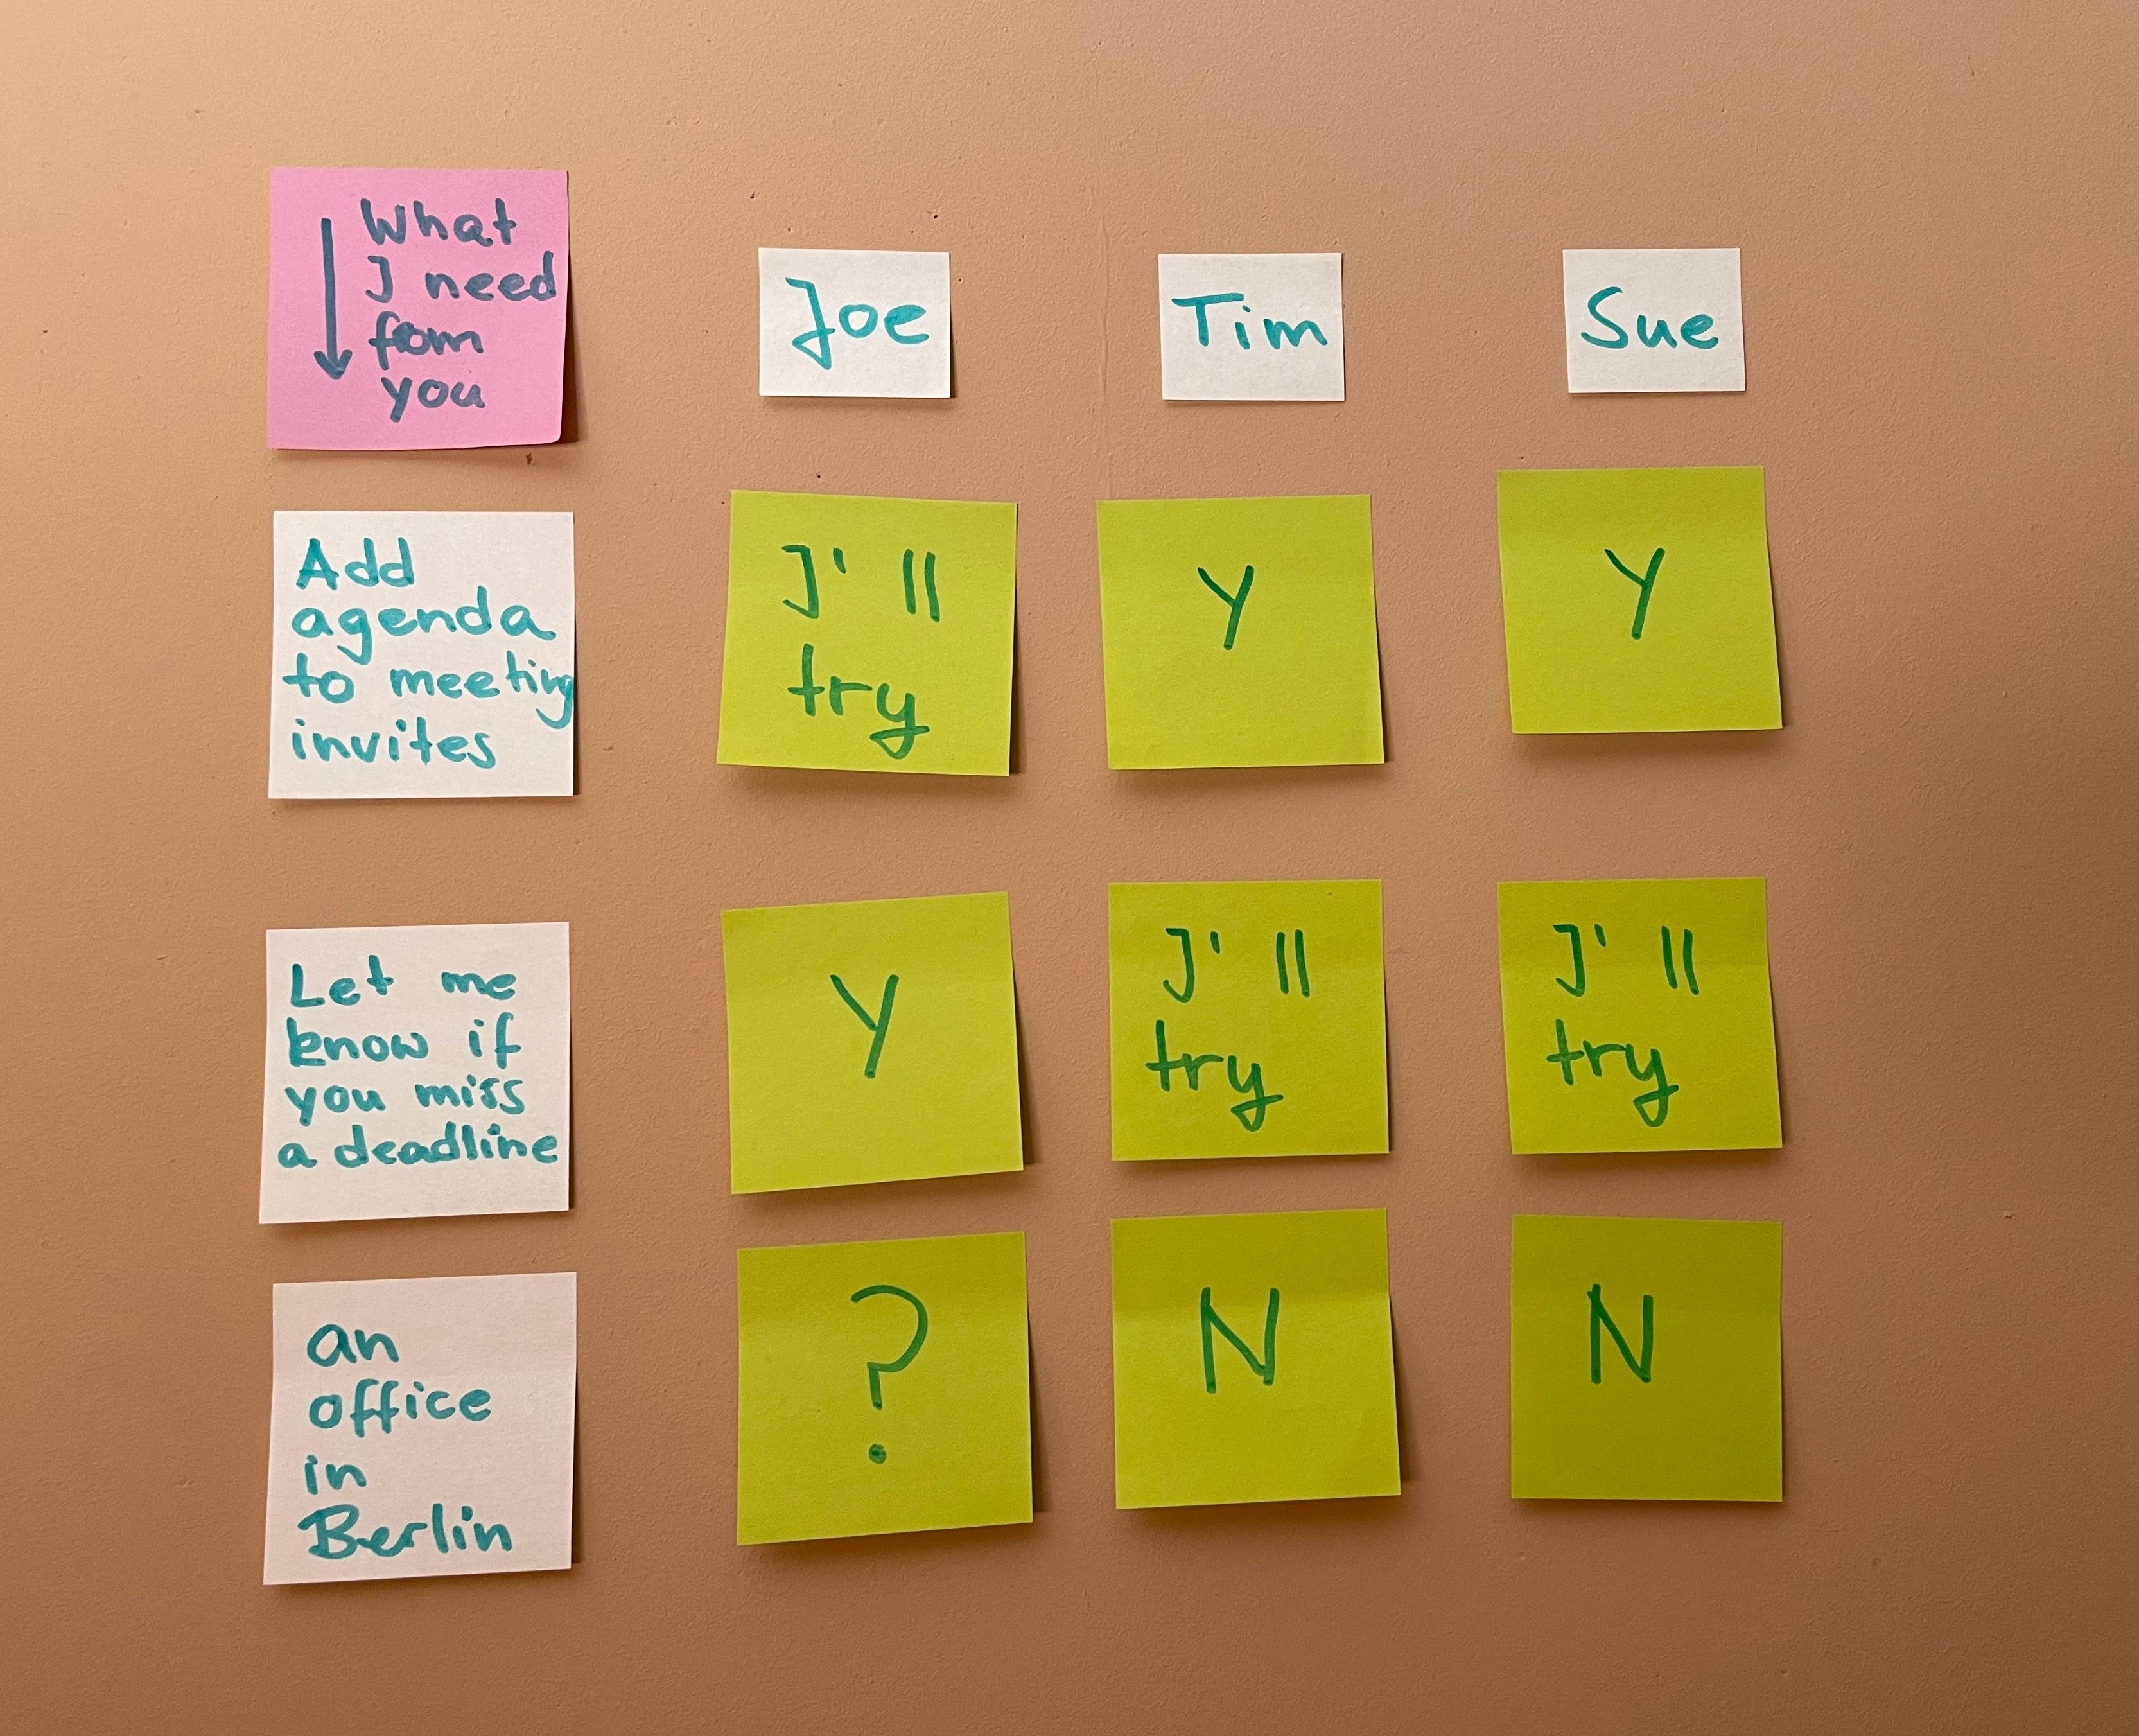 What
I need
fom
you
Joe
Tim
Sue
Add
agenda
to meeting
invites
I'll
try
Y
Y
Let me
know if
you miss
a deadline
Y
I'll
try
I'll
try
an
office
in
Berlin
?
N
N